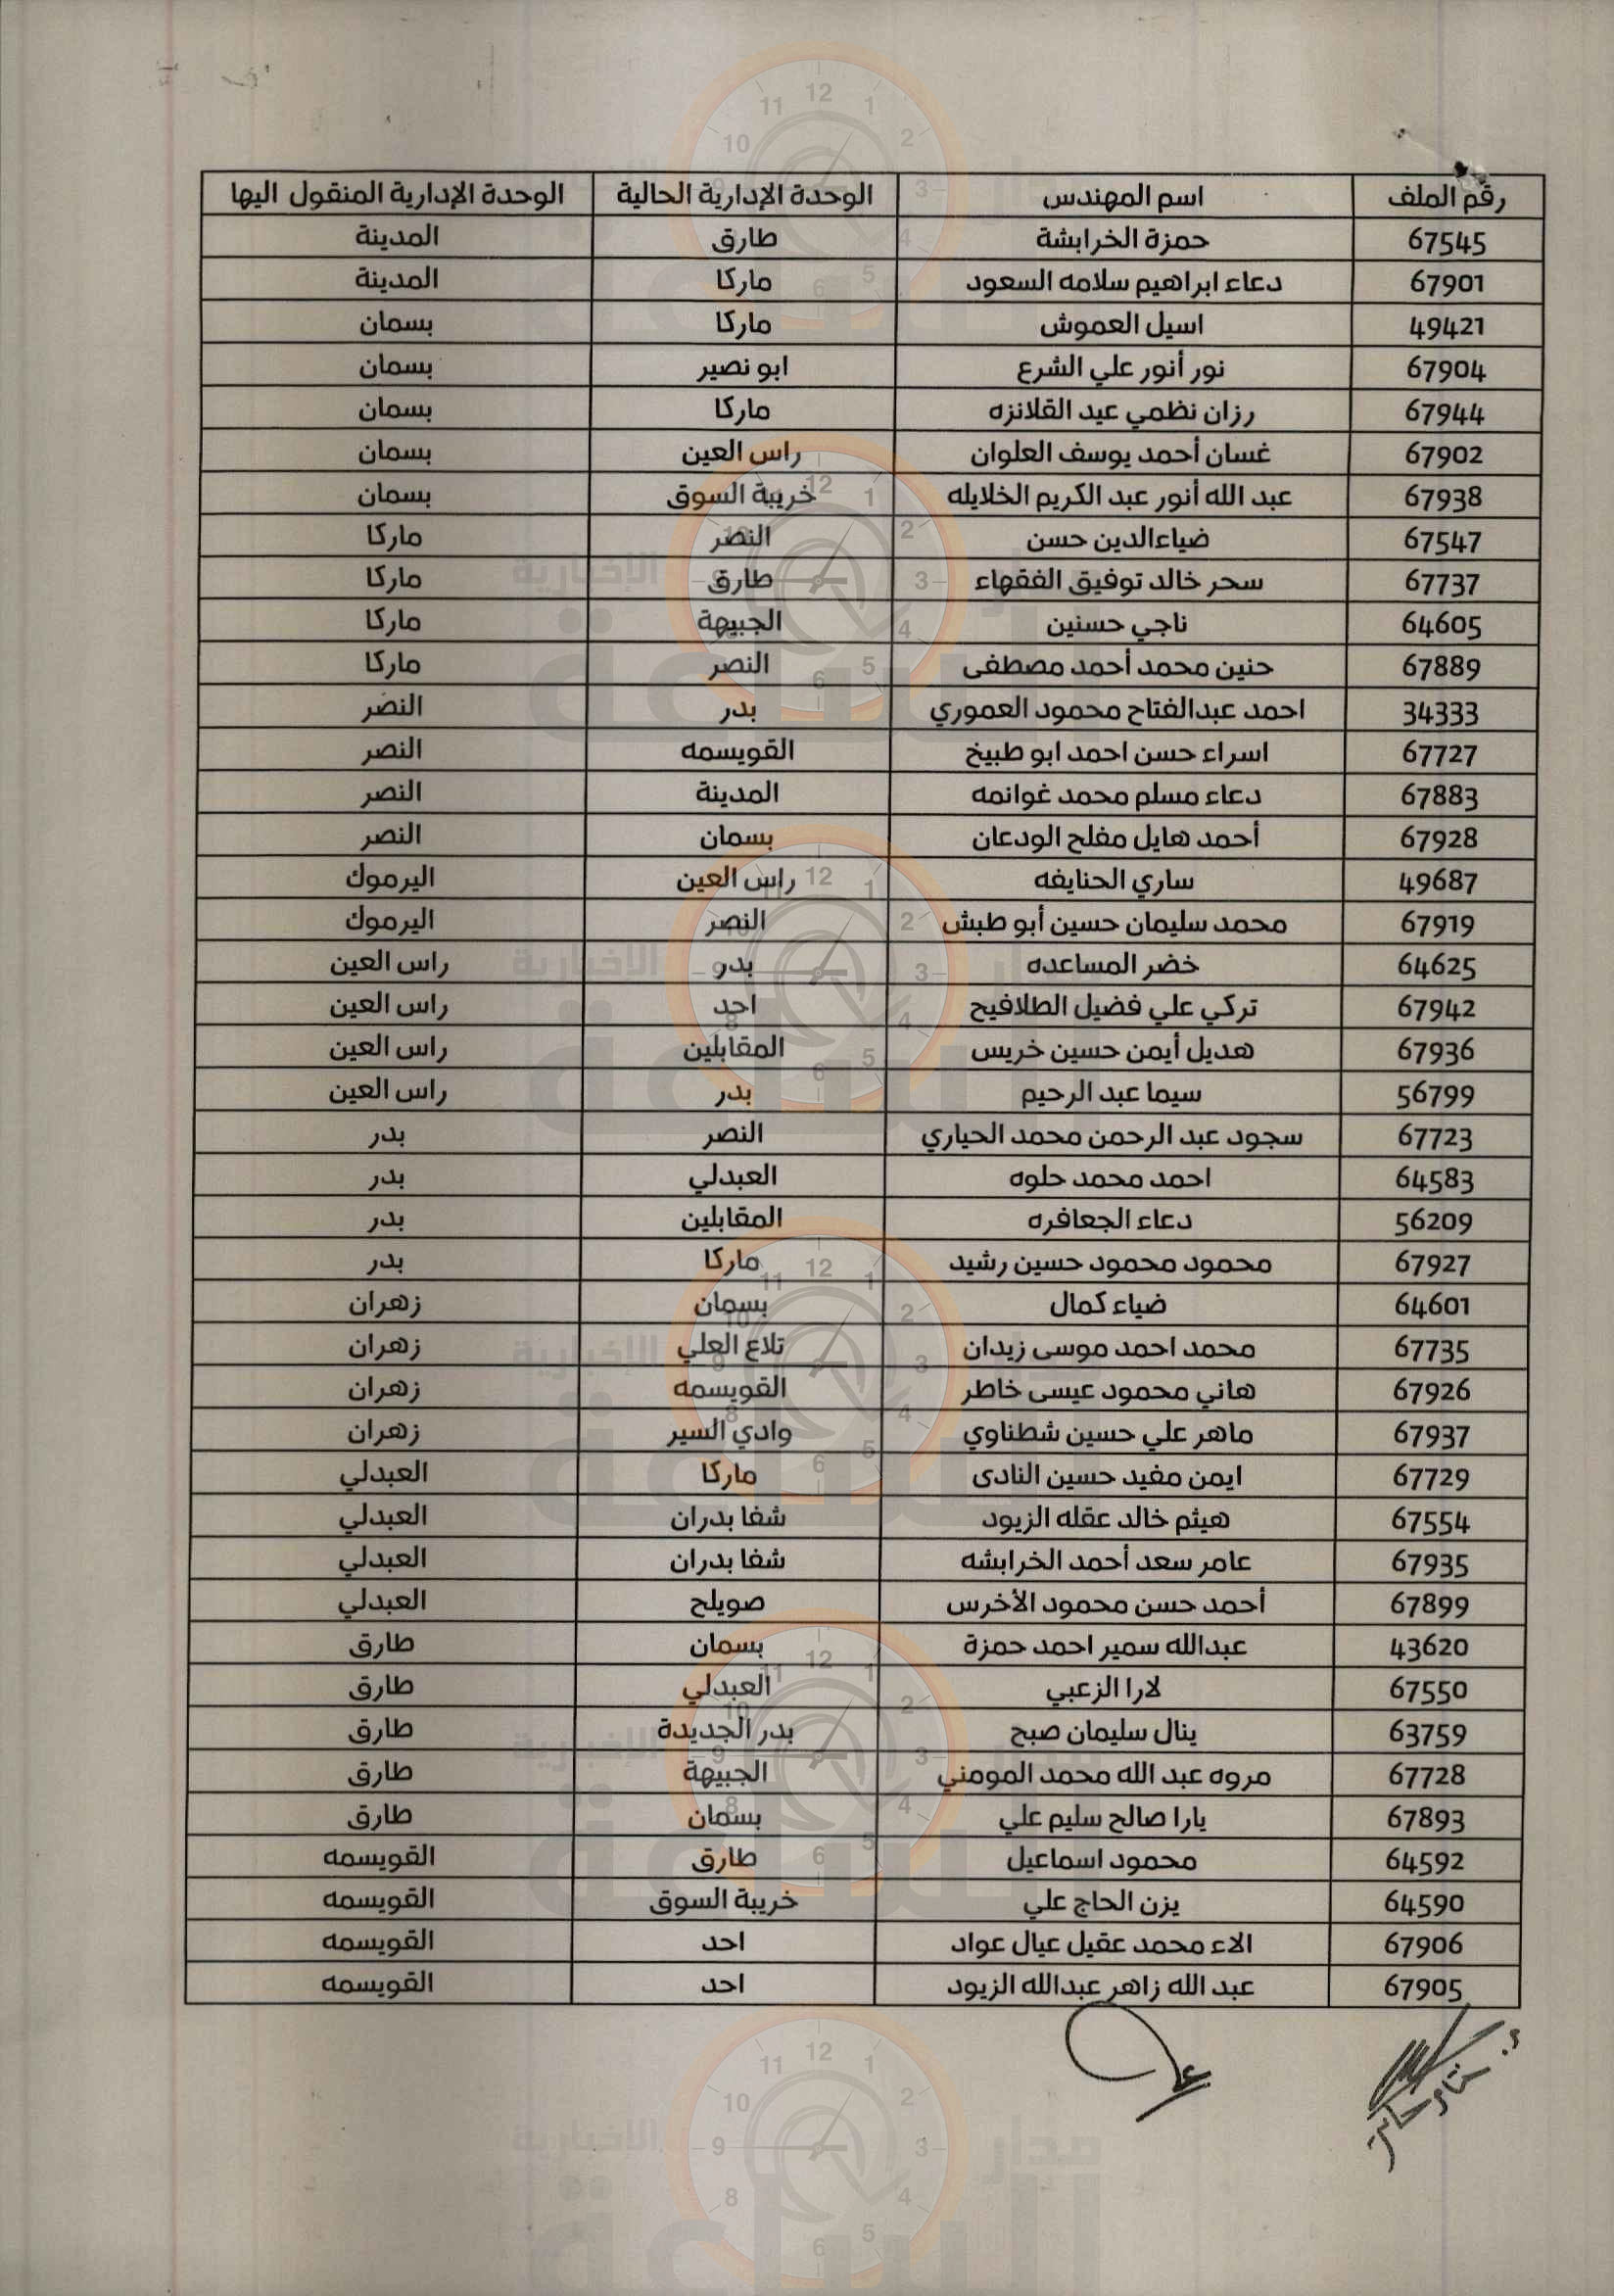 رقم الملف اسم المهندس الوحدة الإدارية الحالية الوحدة الإدارية المنقول اليها
67545 حمزة الخرابشة طارق المدينة
67901 دعاء ابراهيم سلامه السعود ماركا المدينة
49421 اسيل العموش ماركا بسمان
67904 نور أنور علي الشرع ابو نصير بسمان
67944 رزان نظمي عيد القلانزه ماركا بسمان
67902 غسان أحمد يوسف العلوان راس العين بسمان
67938 عبد الله أنور عبد الكريم الخلايله خريبة السوق بسمان
67547 ضياءالدين حسن النصر ماركا
67737 سحر خالد توفيق الفقهاء طارق ماركا
64605 ناجي حسنين الجبيهة ماركا
67889 حنين محمد أحمد مصطفى النصر ماركا
34333 احمد عبدالفتاح محمود العموري بدر النصر
67727 اسراء حسن احمد ابو طبيخ القويسمه النصر
67883 دعاء مسلم محمد غوانمه المدينة النصر
67928 أحمد هايل مفلح الودعان بسمان النصر
49687 ساري الحنايفه راس العين اليرموك
67919 محمد سليمان حسين أبو طبش النصر اليرموك
64625 خضر المساعده بدر راس العين
67942 تركي علي فضيل الطلافيح احد راس العين
67936 هديل أيمن حسين خريس المقابلين راس العين
56799 سيما عبد الرحيم بدر راس العين
67723 سجود عبد الرحمن محمد الحياري النصر بدر
64583 احمد محمد حلوه العبدلي بدر
56209 دعاء الجعافره المقابلين بدر
67927 محمود محمود حسين رشيد ماركا بدر
64601 ضياء كمال بسمان زهران
67735 محمد احمد موسى زيدان تلاع العلي زهران
67926 هاني محمود عيسى خاطر القويسمه زهران
67937 ماهر علي حسين شطناوي وادي السير زهران
67729 ايمن مفيد حسين النادى ماركا العبدلي
67554 هيثم خالد عقله الزيود شفا بدران العبدلي
67935 عامر سعد أحمد الخرابشه شفا بدران العبدلي
67899 أحمد حسن محمود الأخرس صويلح العبدلي
43620 عبدالله سمير احمد حمزة بسمان طارق
67550 لارا الزعبي العبدلي طارق
63759 ينال سليمان صبح بدر الجديدة طارق
67728 مروه عبد الله محمد المومني الجبيهة طارق
67893 يارا صالح سليم علي بسمان طارق
64592 محمود اسماعيل طارق القويسمه
64590 يزن الحاج علي خريبة السوق القويسمه
67906 الاء محمد عقيل عيال عواد احد القويسمه
67905 عبد الله زاهر عبدالله الزيود احد القويسمه
مدار الساعة الإخبارية